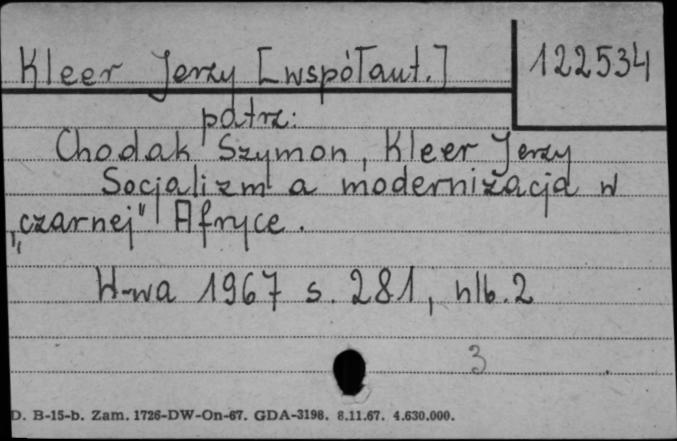 Kleer Jerzy [współaut.]
122534
patrz:
Chodak Szymon, Kleer Jerzy
Socjalizm a modernizacja w
„czarnej" Afryce.
W-wa 1967 s. 281, nlb. 2
3
D. B-15-b. Zam. 1726-DW-On-67. GDA-3198. 8.11.67. 4.630.000.